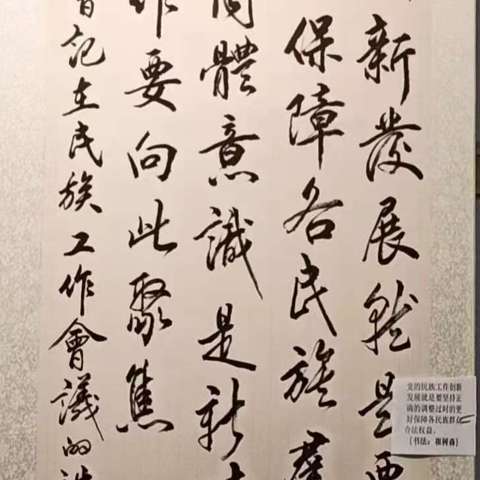 新發展就是要
保障各民族群
同體意識是新
作要向此聚焦
書記在民族工作會議的講
党的民族工作创新
发展就是要坚持正
确的调整过时的更
好保障各民族群众
合法权益。
(书法：崔树森)